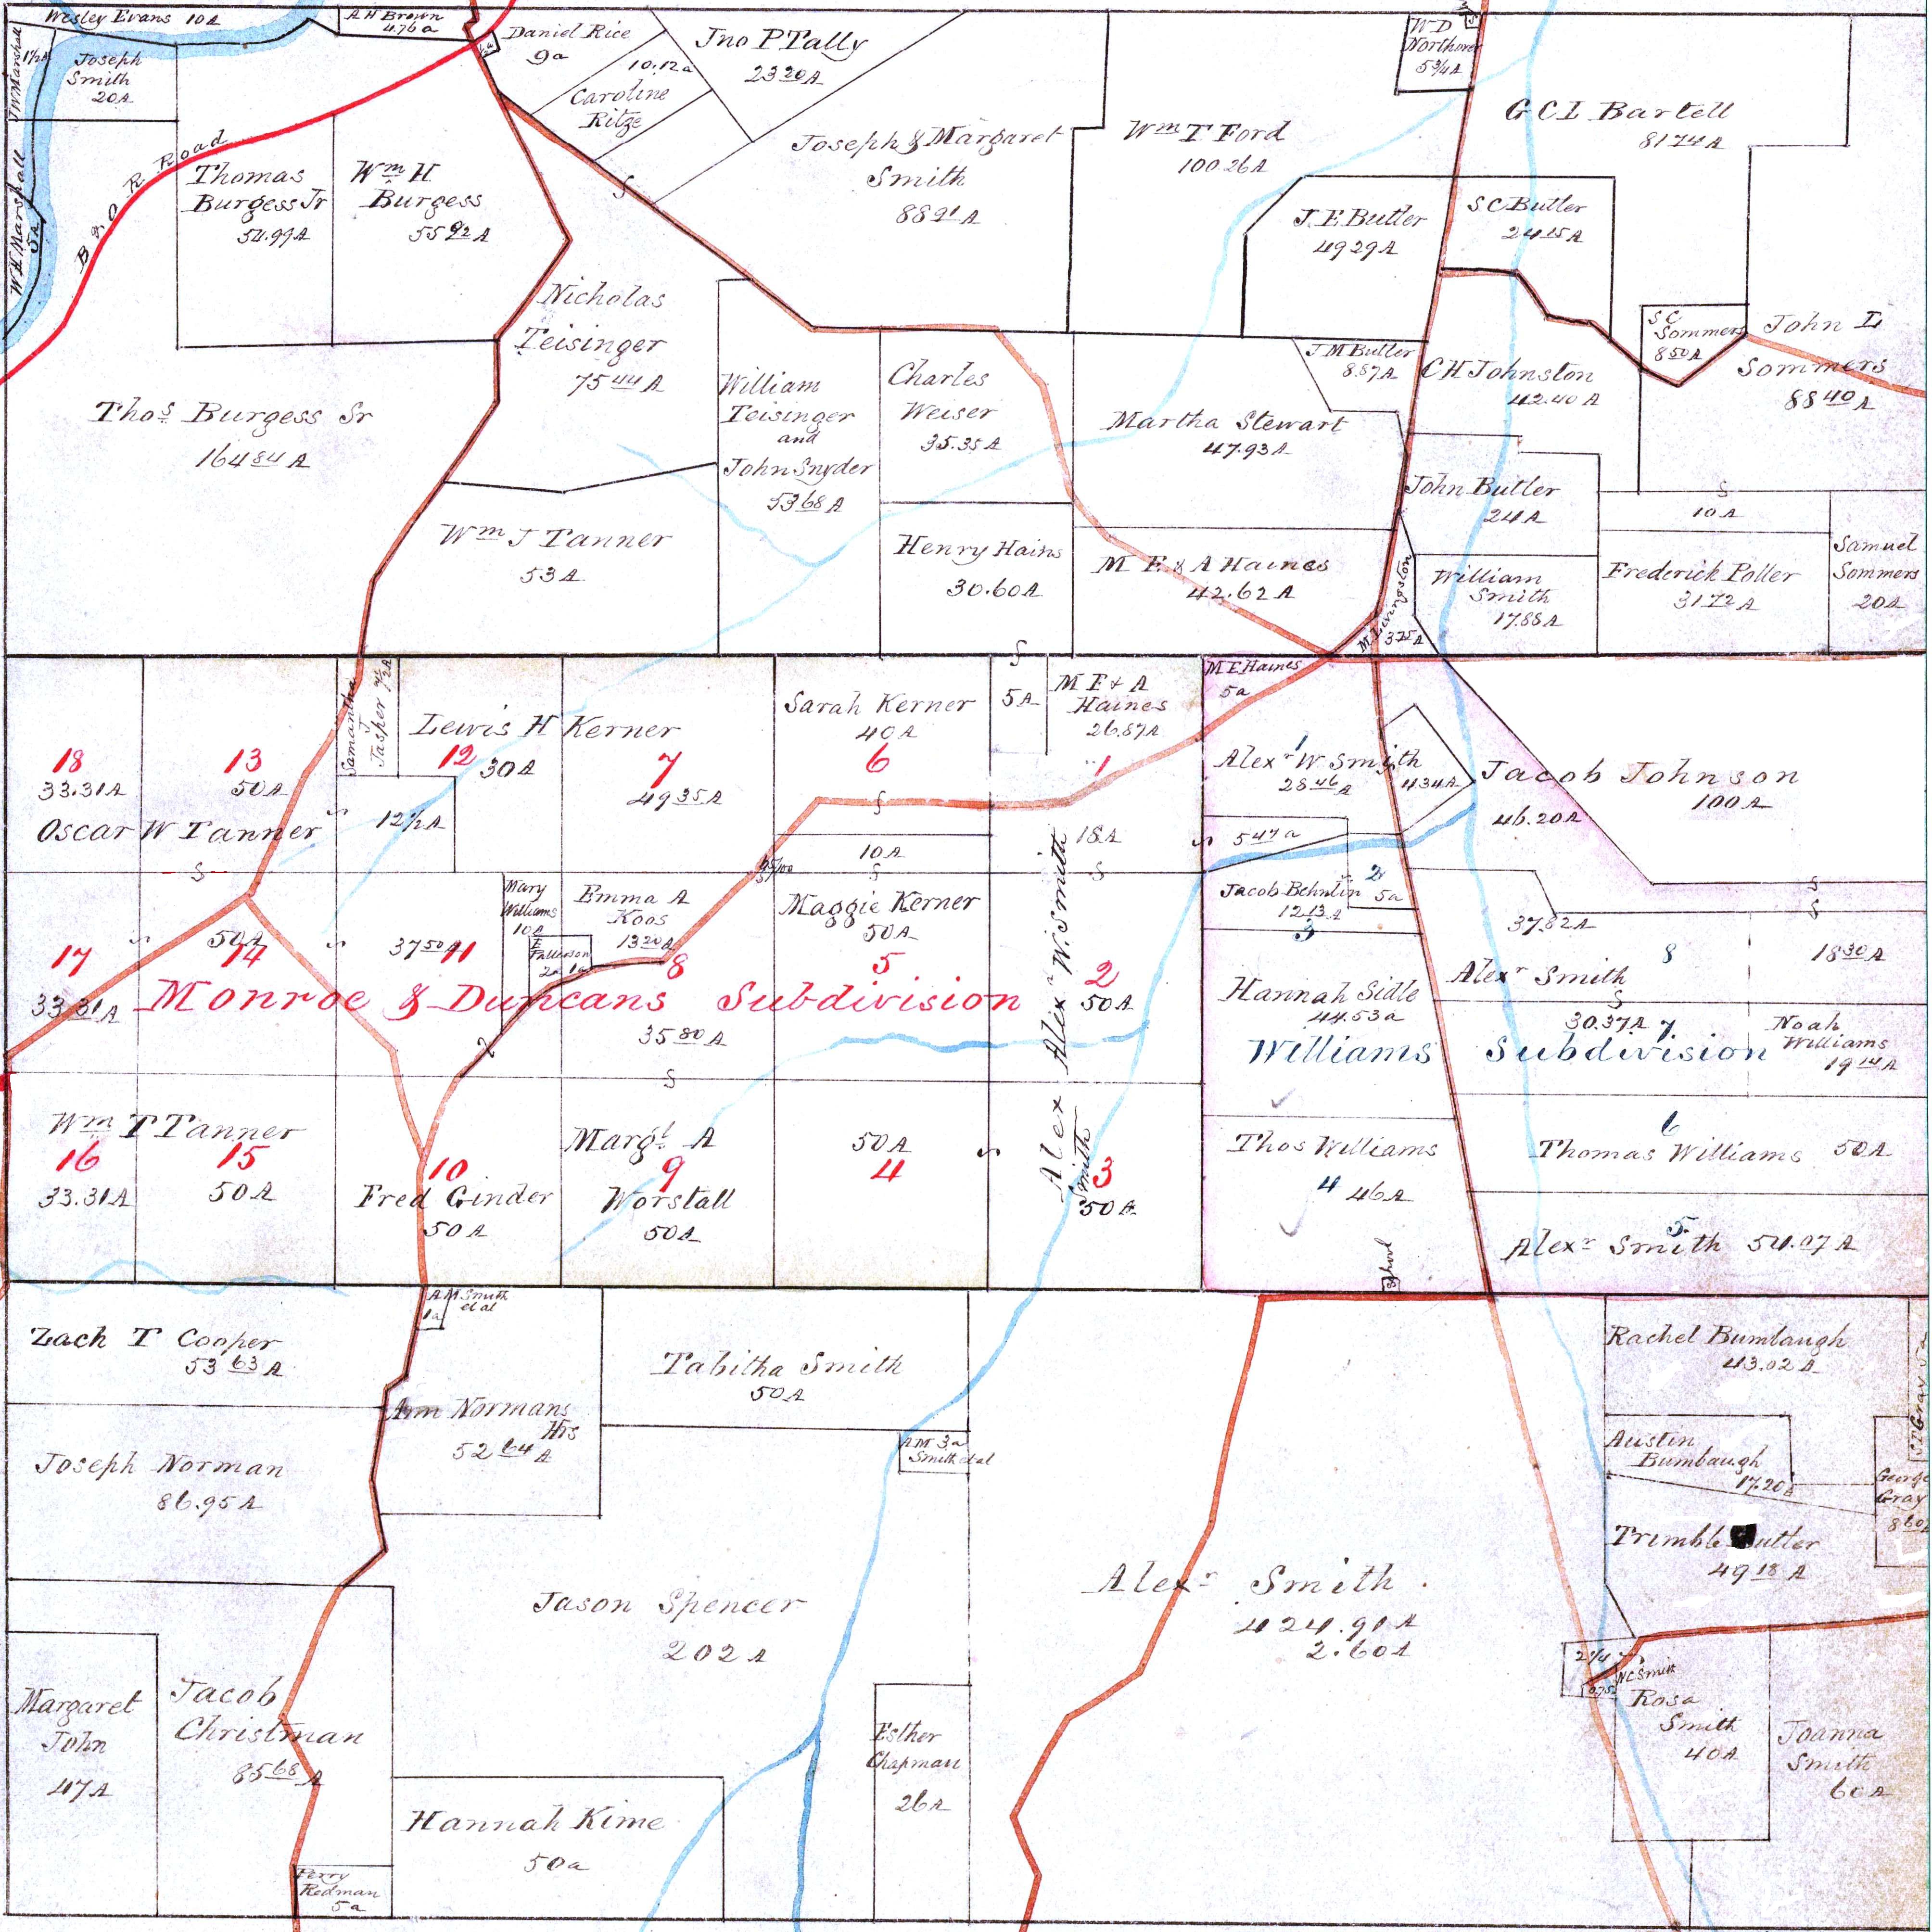 Wesley Evans 10A
A H Brown
4.76a
J W Marshall
1½A
Joseph
Smith
20A
W H Marshall
5A
B & O R Road
Thomas
Burgess Jr
54.99A
Wm H
Burgess
55 92 A
½a
Daniel Rice
9a
10.12a
Caroline
Ritze
Jno P Tally
23 20 A
Joseph & Margaret
Smith
88 91 A
Wm T Ford
100.26A
W D
Northover
5¾A
G C L Bartell
81 74 A
J. E. Butler
49 29 A
S C Butler
24 15 A
S C
Sommers
8 50 A
John L
Sommers
88 40 A
Nicholas
Teisinger
75 44 A
Thos Burgess Sr
164 84 A
William
Teisinger
and
John Snyder
53 68 A
Charles
Weiser
35.35A
J M Butler
8.87A
C H Johnston
42.40 A
Martha Stewart
47.93A
John Butler
24A
10 A
Wm J Tanner
53 A
Henry Hains
30.60A
M E & A Haines
42.62 A
M Livingston
3.75A
William
Smith
17.88A
Frederick Poller
31 72 A
Samuel
Sommers
20A
18
33.31A
13
50A
Oscar W Tanner
Samantha
J
Tasper 7½A
Lewis H Kerner
12
30A
12½A
7
49 35 A
Sarah Kerner
40A
6
10A
95/100
5A
M E & A
Haines
26.87A
1
18A
M E Haines
5a
1
Alexr W Smith
28 46 A
4.34A
Jacob Johnson
100A
46.20A
5 47 a
2
5a
Jacob Behnlin
12 13 A
3
17
33.31A
50A
14
37 50 A
11
Mary
Williams
10A
E
Patterson
2a 1a
Emma A
Koos
13 20 A
8
35 80 A
Maggie Kerner
50A
5
Monroe & Duncans Subdivision
2
50A
Alexr W. Smith
Hannah Sidle
44.53a
37.82A
8
18 30 A
Alexr Smith
30.37A
7
Noah
Williams
19 14 A
Williams Subdivision
Wm T Tanner
16
33.31A
15
50A
10
Fred Ginder
50A
Margt A
9
Worstall
50A
50A
4
Alex
Smith
3
50A
Thos Williams
4
46A
6
Thomas Williams 50A
5
Alexr Smith 54.07A
School
Zach T Cooper
53 63 A
A M Smith
et al
1a
Ann Normans
Hrs
52 64 A
Tabitha Smith
50A
A M 3a
Smith et al
Joseph Norman
86.95A
Rachel Bumbaugh
43.02A
S D Gray
Austin
Bumbaugh
17.20A
George
Gray
8 60
Trimble Butler
49 18 A
Jason Spencer
202 A
Alexr Smith
424.91A
2.60A
2¼
0.75
N C Smith
Rosa
Smith
40A
Joanna
Smith
60A
Margaret
John
47A
Jacob
Christman
85 68 A
Esther
Chapman
26A
Hannah Kime
50a
Perry
Redman
5a